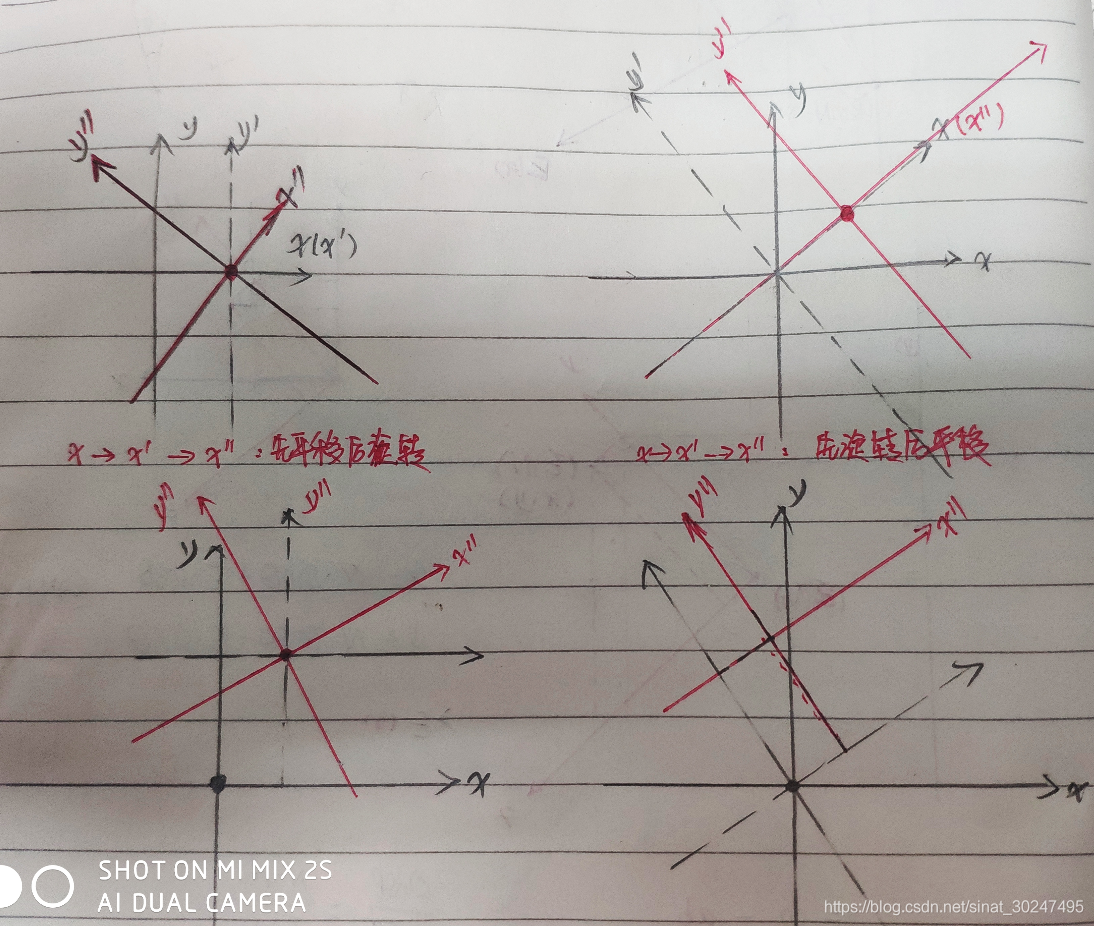 y'' y y'
x''
x(x')
y' y''
y
x(x'')
x
x → x' → x'' : 先平移后旋转
x→x'→x'' : 先旋转后平移
y'' y''
y
x''
x
y'' y
x''
x
SHOT ON MI MIX 2S
AI DUAL CAMERA
https://blog.csdn.net/sinat_30247495